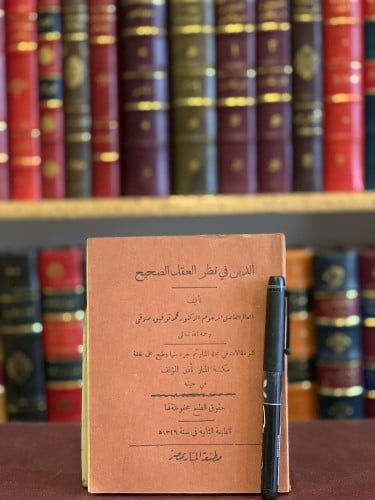 الدين في نظر العقل الصحيح
تأليف
العالم الفاضل المرحوم الدكتور محمد توفيق صدقي
رحمه الله تعالى
نشر مقالات في مجلة المنار ثم جرد منها وطبع على نفقة
مكتبة المنار بأذن المؤلف
في حياته
حقوق الطبع محفوظة لها
الطبعة الثانية في سنة ١٣٤٦ه
مطبعة المنار بمصر